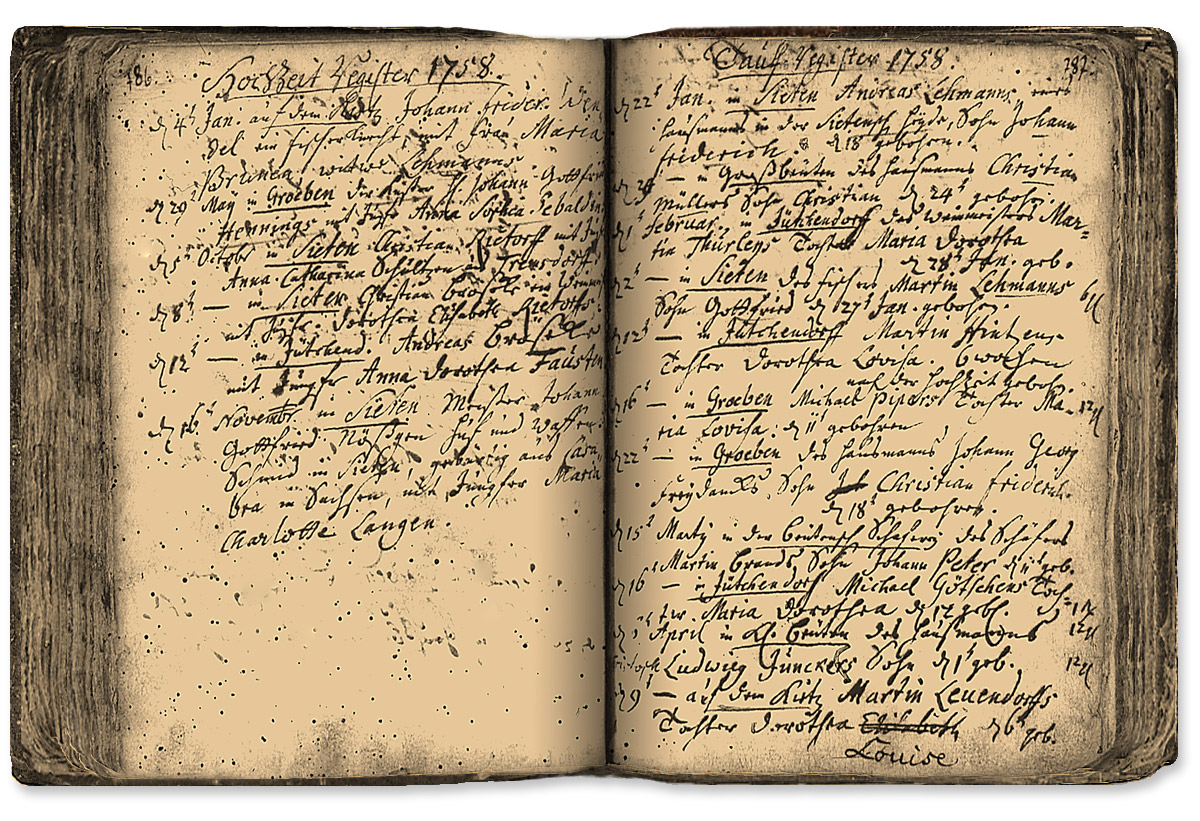 186.
Hochzeit Register 1758.
d 4t Jan. auf dem Kietz Johann Frider. Wen
del ein Fischerknecht, mit Frau Maria
Brunen, wittwe Lehmanns
d 29t May in Groeben der Küster H. Johann Gottfried
Hennings mit Jgfr. Anna Sophia Ebaldin
d 5t Octobr in Sieten Christian Rietorff mit Jgfr
Anna Catharina Schultzen Trensdorf
d 8t — in Sieten Christian Brösike ein
mit Jgfr. Dorothea Elisabeth Rietorffs
d 12 — in Jütchend. Andreas Brösike
mit Jungfr Anna Dorothea Fausten
d 16t Novembr. in Sieten Meister Johann
Gottfried Huf und Waffen
Schmid in Sieten, gebürtig aus
bra in Sachsen, mit Jungfer Maria
Charlotte Langen.
187.
Tauf Register 1758.
d 22t Jan. in Sieten Andreas Lehmanns eines
Hausmanns in der Sietensch Heyde, Sohn Johann
Friderich. d 18t gebohren.
— in Großbeuten des Hausmanns Christian
Müllers Sohn Christian d 24t gebohren
d 1t Februar. in Jütchendorff des Weinmeisters Mar-
tin Thürlens Tochter Maria Dorothea
d 28t Jan. geb.
d 2t — in Sieten des Fischers Martin Lehmanns
Sohn Gottfried d 27t Jan. gebohren.
d 12t — in Jütchendorff Martin Hintzens
Tochter Dorothea Lovisa. 6 wochen
nach der Hochzeit gebohr.
d 16t — in Groeben Michael Pipers Tochter Ma-
ria Lovisa. d 11 gebohren
d 22t — in Groeben des Hausmanns Johann Georg
Freydancks, Sohn Christian Friderich.
d 18t gebohren.
d 15t Martij in der Beutensch Schäferey des Schäfers
Martin Brands Sohn Johann Peter d 11t geb.
d 16 — in Jütchendorf Michael Götschens Toch-
ter Maria Dorothea d 12 geb.
April in Kl. Beuten des Hausmanns
Ludwieg Jünckers Sohn d 1t geb.
d 9t — auf dem Kietz Martin Leuendorffs
Tochter Dorothea Elisabeth d 6t geb.
Louise